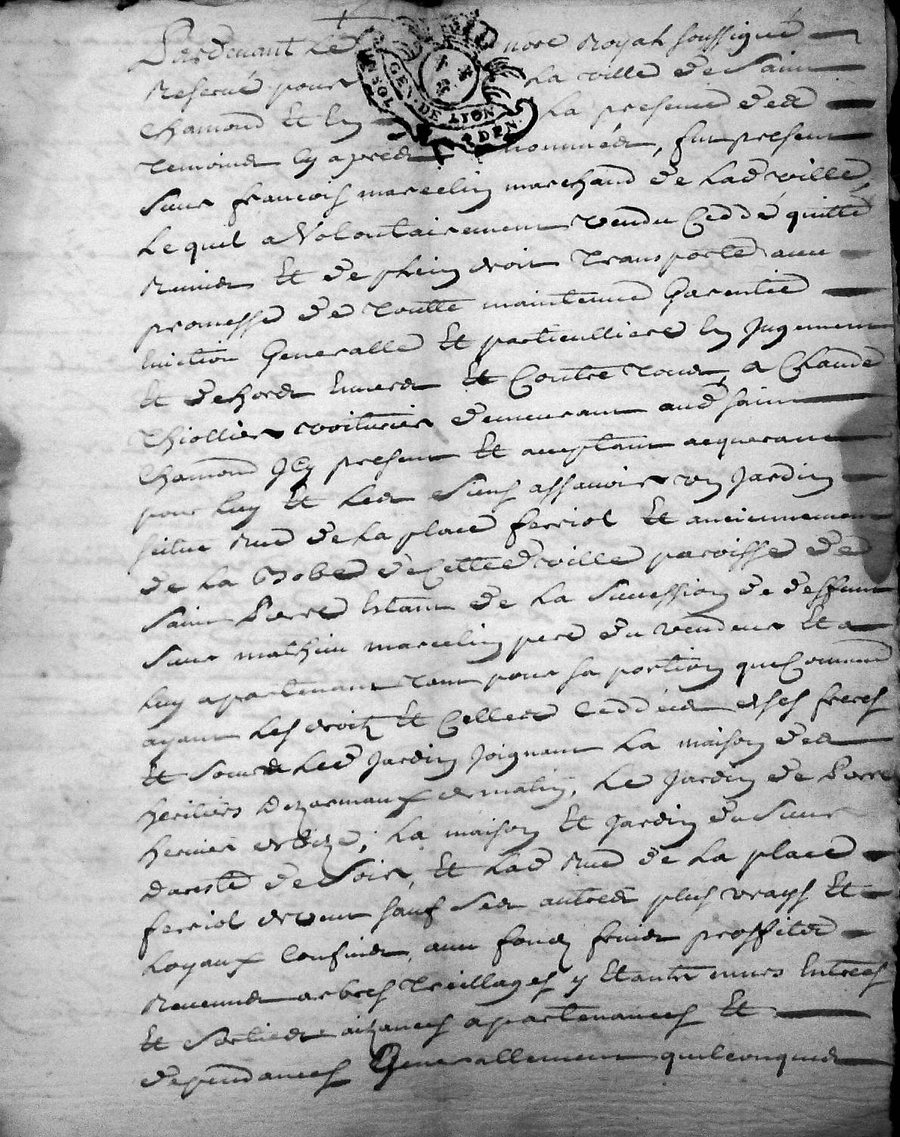 Pardevant Le nore Royal soussigné
Reservé pour La ville de Saint
Chamond et en La presence des
temoins cy apres nommés, fut present
Sieur francois marcelin marchand de lad ville
Lequel a Volontairement vendu Ceddé quitté
Remis et de plein droit transporté avec
promesse de toutte maintenue Garentie
Eviction Generalle et particulliere en Jugement
et dehors Envers et Contre tous, a Claude
thiollier voiturier demeurant aud saint
Chamond Icy present et acceptant acquerant
pour luy et Les Siens assavoir un Jardin
scitué Rue de La place ferriol et anciennement
de La de Cette ville parroisse de
Saint Pierre Estant de La Succession de deffunt
Sieur mathieu marcelin pere du vendeur et a
luy apartenant tant pour sa portion que Comme
ayant Les droits et Celles Ceddées de ses freres
et Sœurs Led Jardin Joignant La maison des
heritiers Dezarmaux de matin, Le Jardin de Pierre
hervier de bize, La maison et Jardin du Sieur
de Soir, et Lad Rue de La place
ferriol de vent sauf Ses autres plus vrays et
Loyaux Confins, avec fonds fruits proffits
Revenus arbres treillages y Etant murs Entrées
et Sorties aizances apartenances et
dependances Generallement quelconques
GEN. DE LION